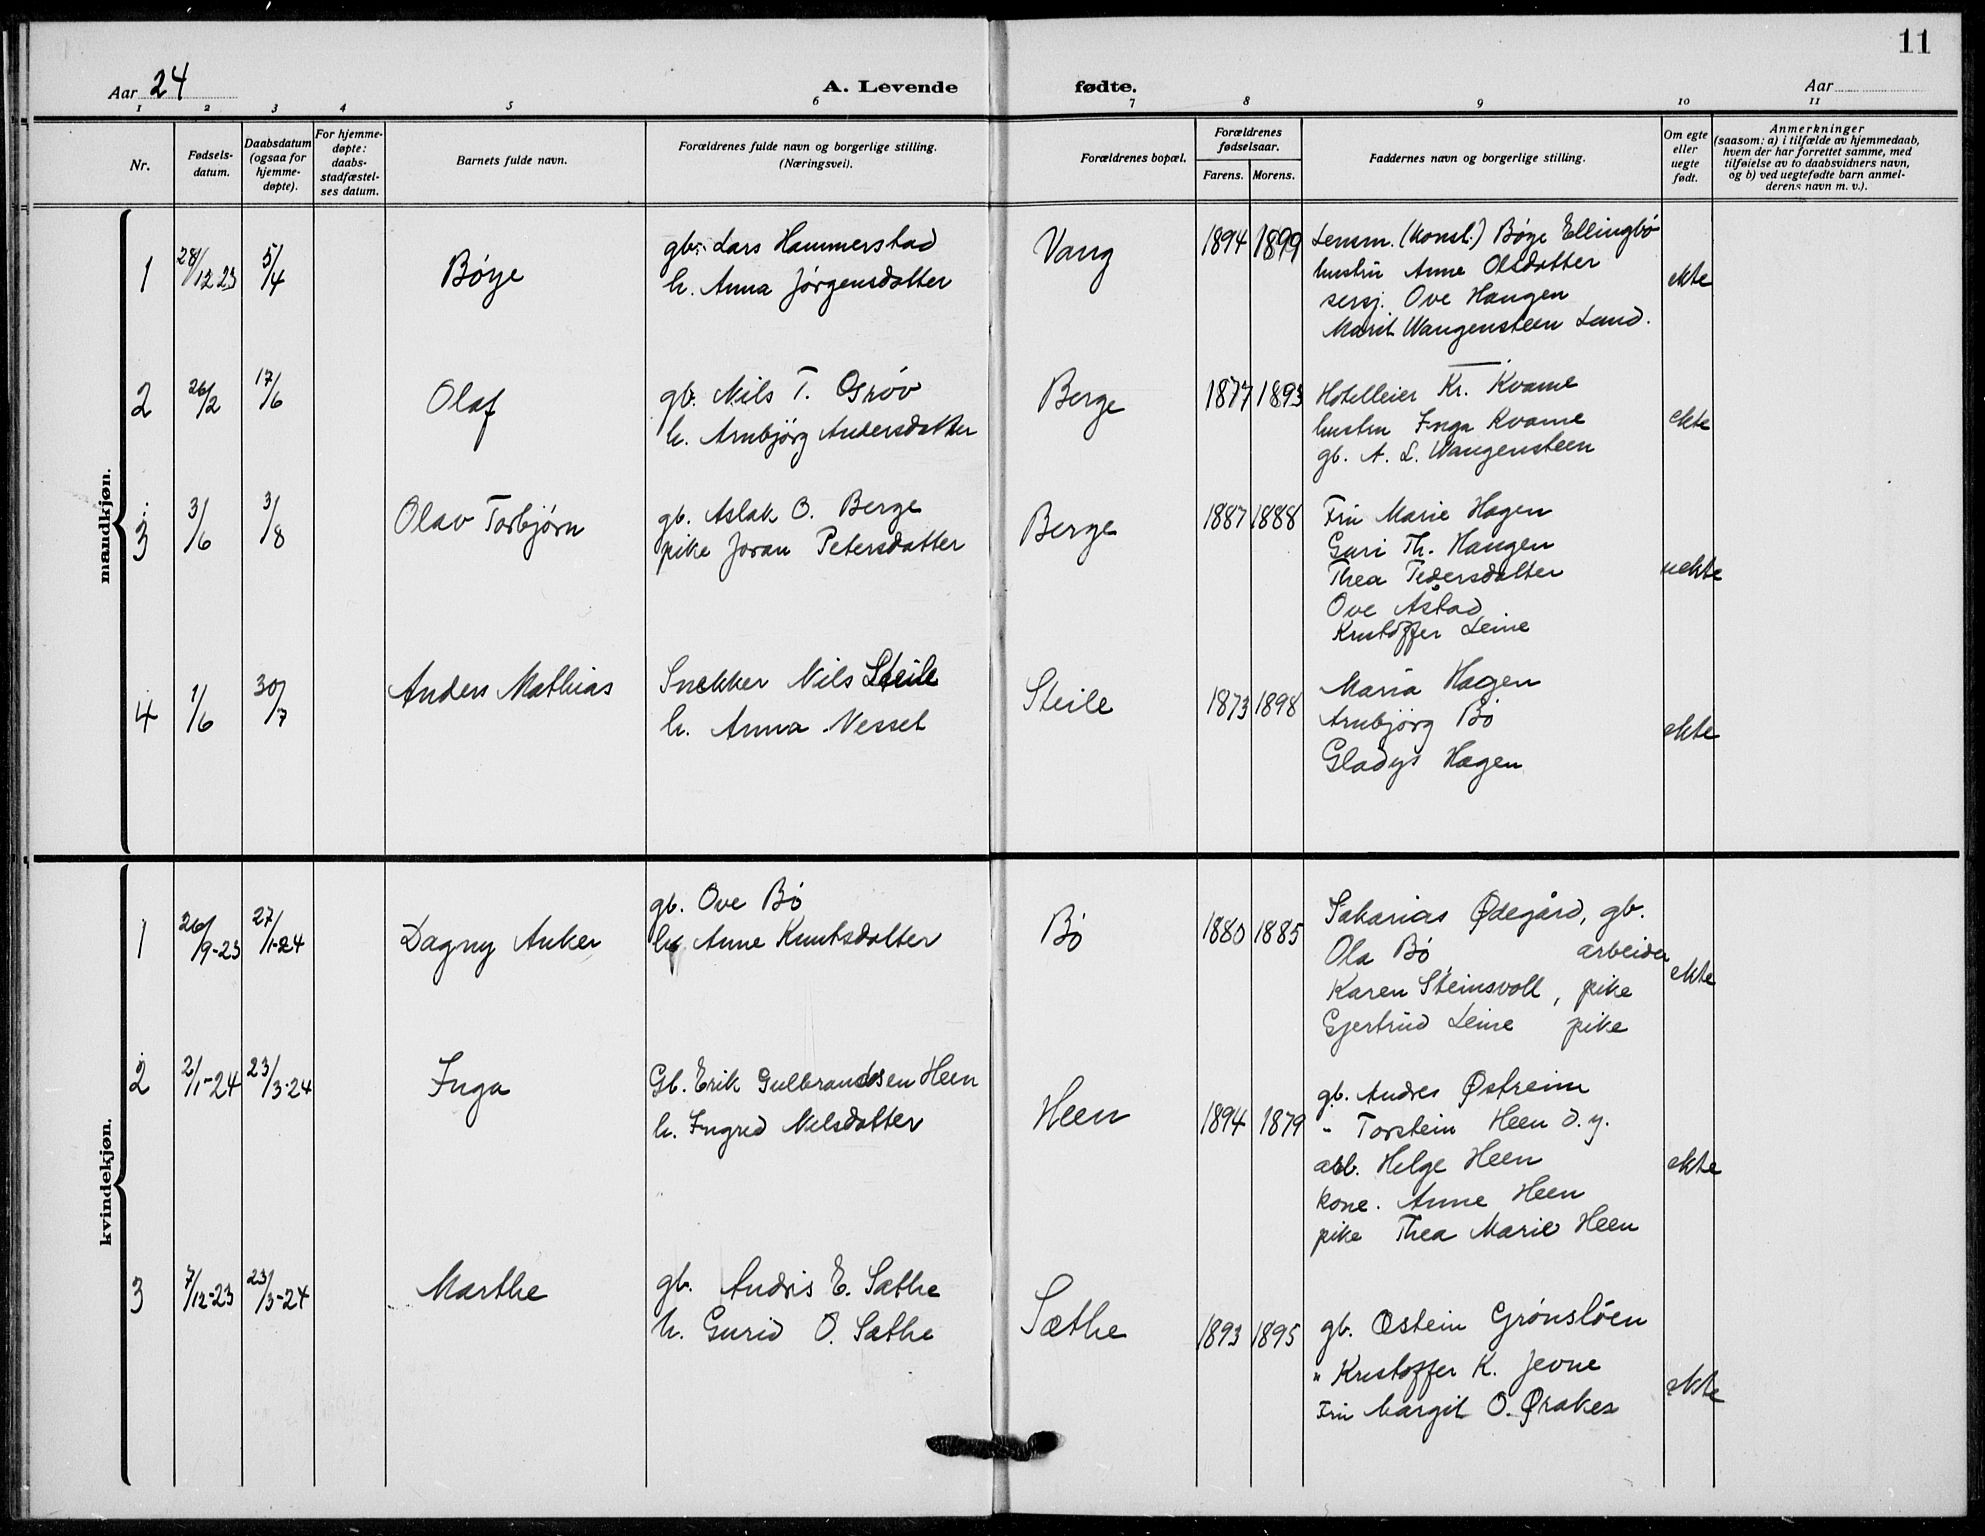 11
Aar 24
A. Levende fødte.
Aar
1 2 3 4 5 6 7 8 9 10 11
Nr.
Fødsels-
datum.
Daabsdatum
(ogsaa for
hjemme-
døpte).
For hjemme-
døpte:
daabs-
stadfæstel-
ses datum.
Barnets fulde navn.
Forældrenes fulde navn og borgerlige stilling.
(Næringsvei).
Forældrenes bopæl.
Forældrenes
fødselsaar.
Farens. Morens.
Faddernes navn og borgerlige stilling.
Om egte
eller
uegte
født.
Anmerkninger
(saasom: a) i tilfælde av hjemmedaab,
hvem der har forrettet samme, med
tilføielse av to daabsvidners navn,
og b) ved uegtefødte barn anmel-
derens navn m. v.).
mandkjøn.
1
28/12 23
5/4
Böye
gbr. Lars Hammerstad
h. Anna Jørgensdatter
Vang
1894 1899
Lensm. (konst.) Böye Ellingbö
hustru Anne Olsdatter
sersj. Ove Haugen
Marit Wangensteen Land.
ekte
2
26/2
17/6
Olaf
gb. Nils T. Grøv
h. Arnbjörg Andersdatter
Berge
1877 1893
Hotelleier Kr. Kvame
hustru Inga Kvame
gb. A. L. Wangensteen
ekte
3
3/6
3/8
Olav Torbjørn
gb. Aslak O. Berge
pike Joran Petersdatter
Berge
1887 1888
Fru Marie Hagen
Guri Th. Haugen
Thea Pedersdatter
Ove Åstad
Kristoffer Leine
uekte
4
1/6
30/7
Anders Mathias
Snekker Nils Steile
h. Anna Nesset
Steile
1873 1898
Maria Hagen
Arnbjörg Bö
Gladys Hagen
ekte
kvindekjøn.
1
26/9-23
27/1-24
Dagny Anker
gb. Ove Bö
h. Anne Knutsdatter
Bö
1880 1885
Sakarias Ødegård, gb.
Ola Bö arbeider
Karen Steinsvoll, pike
Gjertrud Leine pike
ekte
2
2/1-24
23/3-24
Inga
Gb. Erik Gulbrandsen Heen
h. Ingrid Nilsdatter
Heen
1894 1879
gb. Andres Østreim
" Torstein Heen d.y.
arb. Helge Heen
kone. Anne Heen
pike Thea Marie Heen
ekte
3
7/12-23
23/3-24
Marthe
gb. Andris E. Sæthe
h. Gurid O. Sæthe
Sæthe
1893 1895
gb. Østein Grönslöen
" Kristoffer K. Jevne
Fru Margit O.
ekte